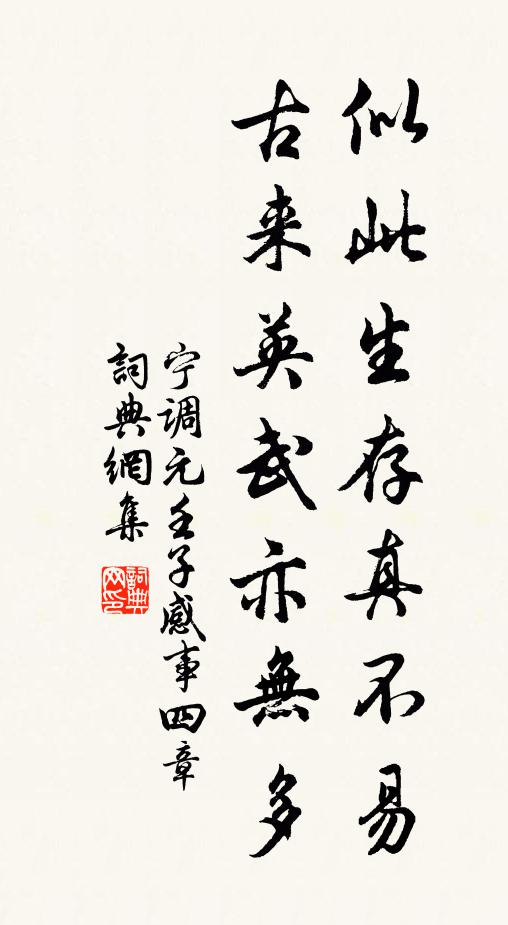 似此生存真不易
古来英武亦無多
宁调元壬子感事四章
詞典網集
詞典网印